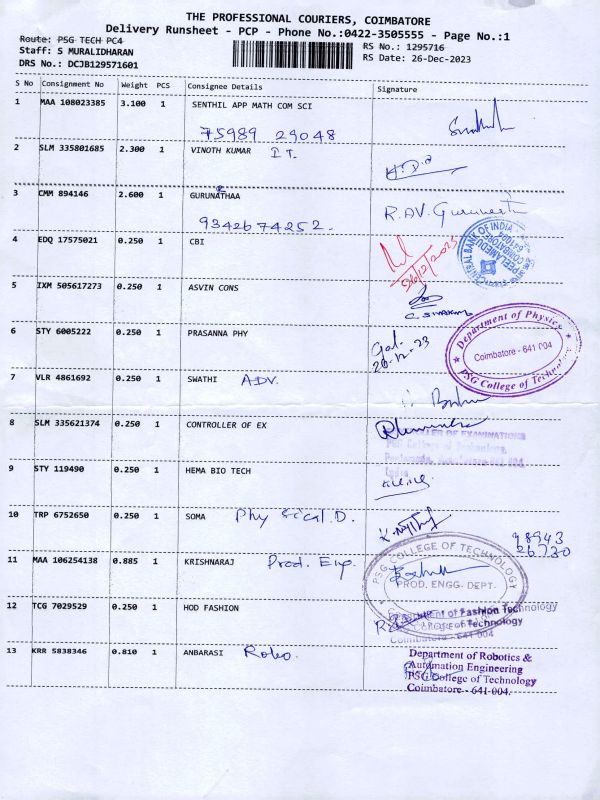 THE PROFESSIONAL COURIERS, COIMBATORE
Delivery Runsheet - PCP - Phone No.:0422-3505555 - Page No.:1
Route: PSG TECH PC4
RS No.: 1295716
Staff: S MURALIDHARAN
RS Date: 26-Dec-2023
DRS No.: DCJB129571601
S No Consignment No Weight PCS Consignee Details Signature
1 MAA 108023385 3.100 1 SENTHIL APP MATH COM SCI
75989 29048
2 SLM 335801685 2.300 1 VINOTH KUMAR I T.
3 CMM 894146 2.600 1 GURUNATHAA
9342674252.
R.AV.
4 EDQ 17575021 0.250 1 CBI
26/12/2023
CENTRAL BANK OF INDIA
PEELAMEDU
COIMBATORE
641004
5 IXM 505617273 0.250 1 ASVIN CONS
6 STY 6005222 0.250 1 PRASANNA PHY
26-12-23
Department of Physics
Coimbatore - 641 004
PSG College of Technology
7 VLR 4861692 0.250 1 SWATHI ADV.
8 SLM 335621374 0.250 1 CONTROLLER OF EX
CONTROLLER OF EXAMINATIONS
PSG College of Technology,
9 STY 119490 0.250 1 HEMA BIO TECH
10 TRP 6752650 0.250 1 SOMA Phy sical. D.
98943
26730
11 MAA 106254138 0.885 1 KRISHNARAJ Prod. Eng.
PSG COLLEGE OF TECHNOLOGY
PROD. ENGG. DEPT.
12 TCG 7029529 0.250 1 HOD FASHION
Department of Fashion Technology
PSG College of Technology
Coimbatore - 641 004
13 KRR 5838346 0.810 1 ANBARASI Robo.
Department of Robotics &
Automation Engineering
PSG College of Technology
Coimbatore - 641-004.